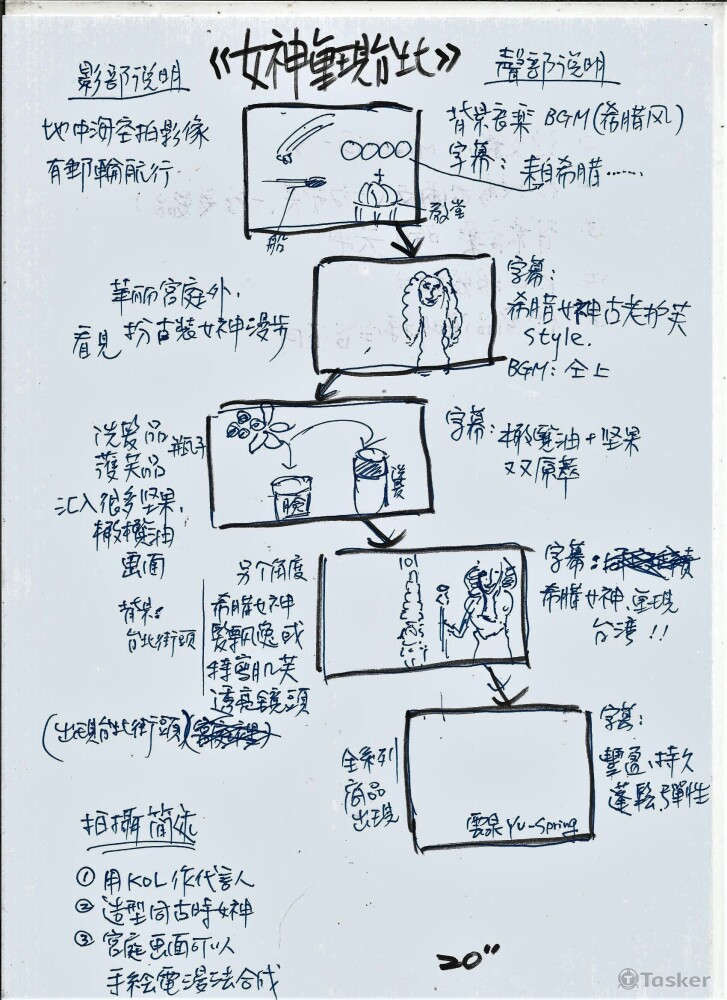 《女神重現台北》
影部说明
聲部说明
地中海空拍影像
有郵輪航行
船
教堂
背景音乐 BGM(希腊风)
字幕:
来自希腊……
華丽宮庭外,
看見扮古装女神漫步
字幕:
希腊女神古老护美
style.
BGM:仝上
洗髮品
護芙品
瓶子
汇入很多坚果,
橄欖油
画面
臉
洗髮
字幕:橄欖油+坚果
双原萃
背景:
台北街頭
另个角度
希腊女神
髮飄逸或
特寫肌芙
透亮鏡頭
(出現台北街頭)
101
字幕:
希腊女神、重現
台湾!!
全系列
商品
出現
雲泉 Yu-Spring
字幕:
豐盈、持久
蓬鬆,彈性
拍攝簡述
① 用KOL作代言人
② 造型同古時女神
③ 宮庭画面可以
手绘電漫法合成
20"
Tasker